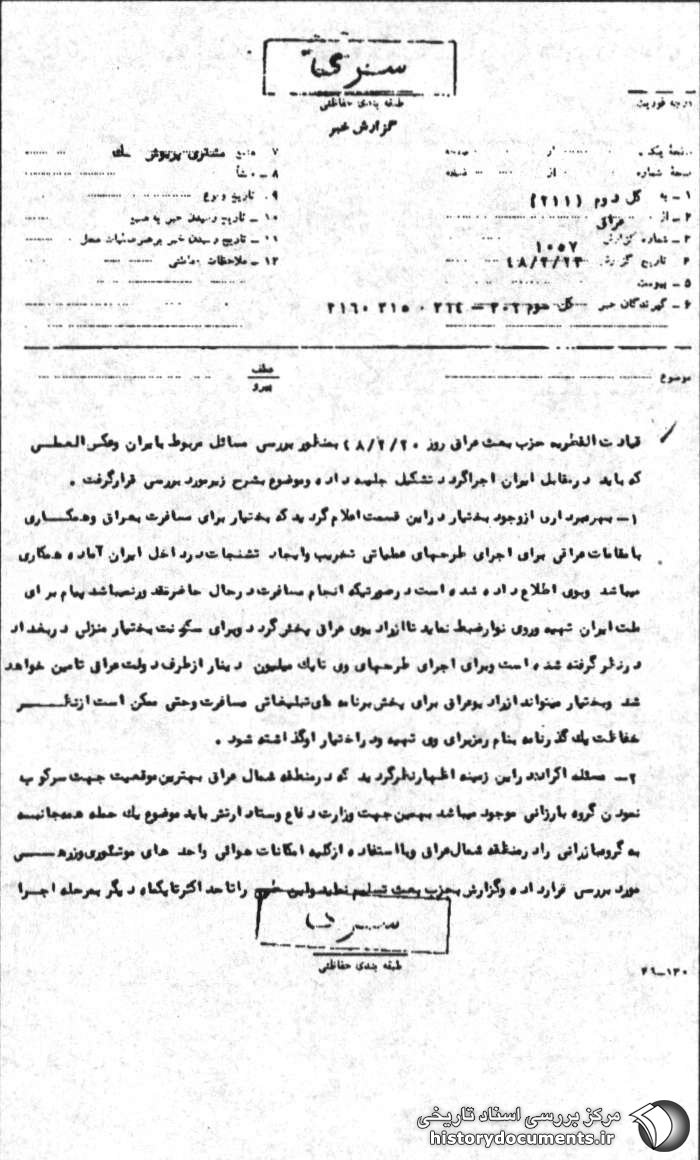 سری
طبقه بندی حفاظتی
گزارش خبر
درجه فوریت
۷ منبع
۸ ـ منشأ
۹. تاریخ وقوع
۱۰ ـ تاریخ رسیدن خبر به منبع
۱۱ ـ تاریخ رسیدن خبر برهبر عملیات محل
۱۲ ـ ملاحظات حفاظتی
نسخه شماره از نسخه
۱ ـ به کل دوم (۲۱۱)
۲ ـ از عراق
۳ ـ شماره گزارش ۱۰۵۷
۴ تاریخ گزارش ۴۸/۲/۲۳
۵ ـ پیوست
۶ ـ گیرندگان خبر کل سوم ۳۰۲ ـ ۲۶۴ ۰ ۳۱۵ ۲۱۶۰
موضوع
عطف
پیرو
قیادت القطریه حزب بعث عراق روز ۴۸/۲/۲۰ بمنظور بررسی مسائل مربوط بایران وعکس العملی
که باید درمقابل ایران اجراگردد تشکیل جلسه داده وموضوع بشرح زیرمورد بررسی قرارگرفت .
۱ـ بهره‌برداری ازوجود بختیار دراین قسمت اعلام گردید که بختیار برای مسافرت بعراق وهمکاری
بامقامات عراقی برای اجرای طرحهای عملیاتی تخریب وایجاد تشنجات درداخل ایران آماده همکاری
میباشد وبوی اطلاع داده شده است درصورتیکه انجام مسافرت درحال حاضرمقدورنمیباشد پیام برای
ملت ایران تهیه وروی نوارضبط نماید تاازرادیوی عراق پخش گردد وبرای سکونت بختیار منزلی دربغداد
درنظرگرفته شده است وبرای اجرای طرحهای وی تایک میلیون دینار ازطرف دولت عراق تامین خواهد
شد وبختیار میتواند ازرادیوعراق برای پخش برنامه های تبلیغاتی مسافرت وحتی ممکن است ازنظر
حفاظت یک گذرنامه بنام رمزبرای وی تهیه ودراختیار اوگذاشته شود .
۲ـ مسئله اکراد دراین زمینه اظهارنظرگردید که درمنطقه شمال عراق بهترین موقعیت جهت سرکوب
نمودن گروه بارزانی موجود میباشد بهمین جهت وزارت دفاع وستاد ارتش باید موضوع یک حمله همه‌جانبه
به گروه بارزانی رادرمنطقه شمال عراق وبااستفاده ازکلیه امکانات هوائی واحد های موتوری وزرهی
مورد بررسی قرارداده وگزارش بحزب بعث تسلیم نماید واین راتاحداکثرتایکماه دیگر بمرحله اجرا
سری
طبقه بندی حفاظتی
۴۶ـ۱۳۰
مرکز بررسی اسناد تاریخی
historydocuments.ir